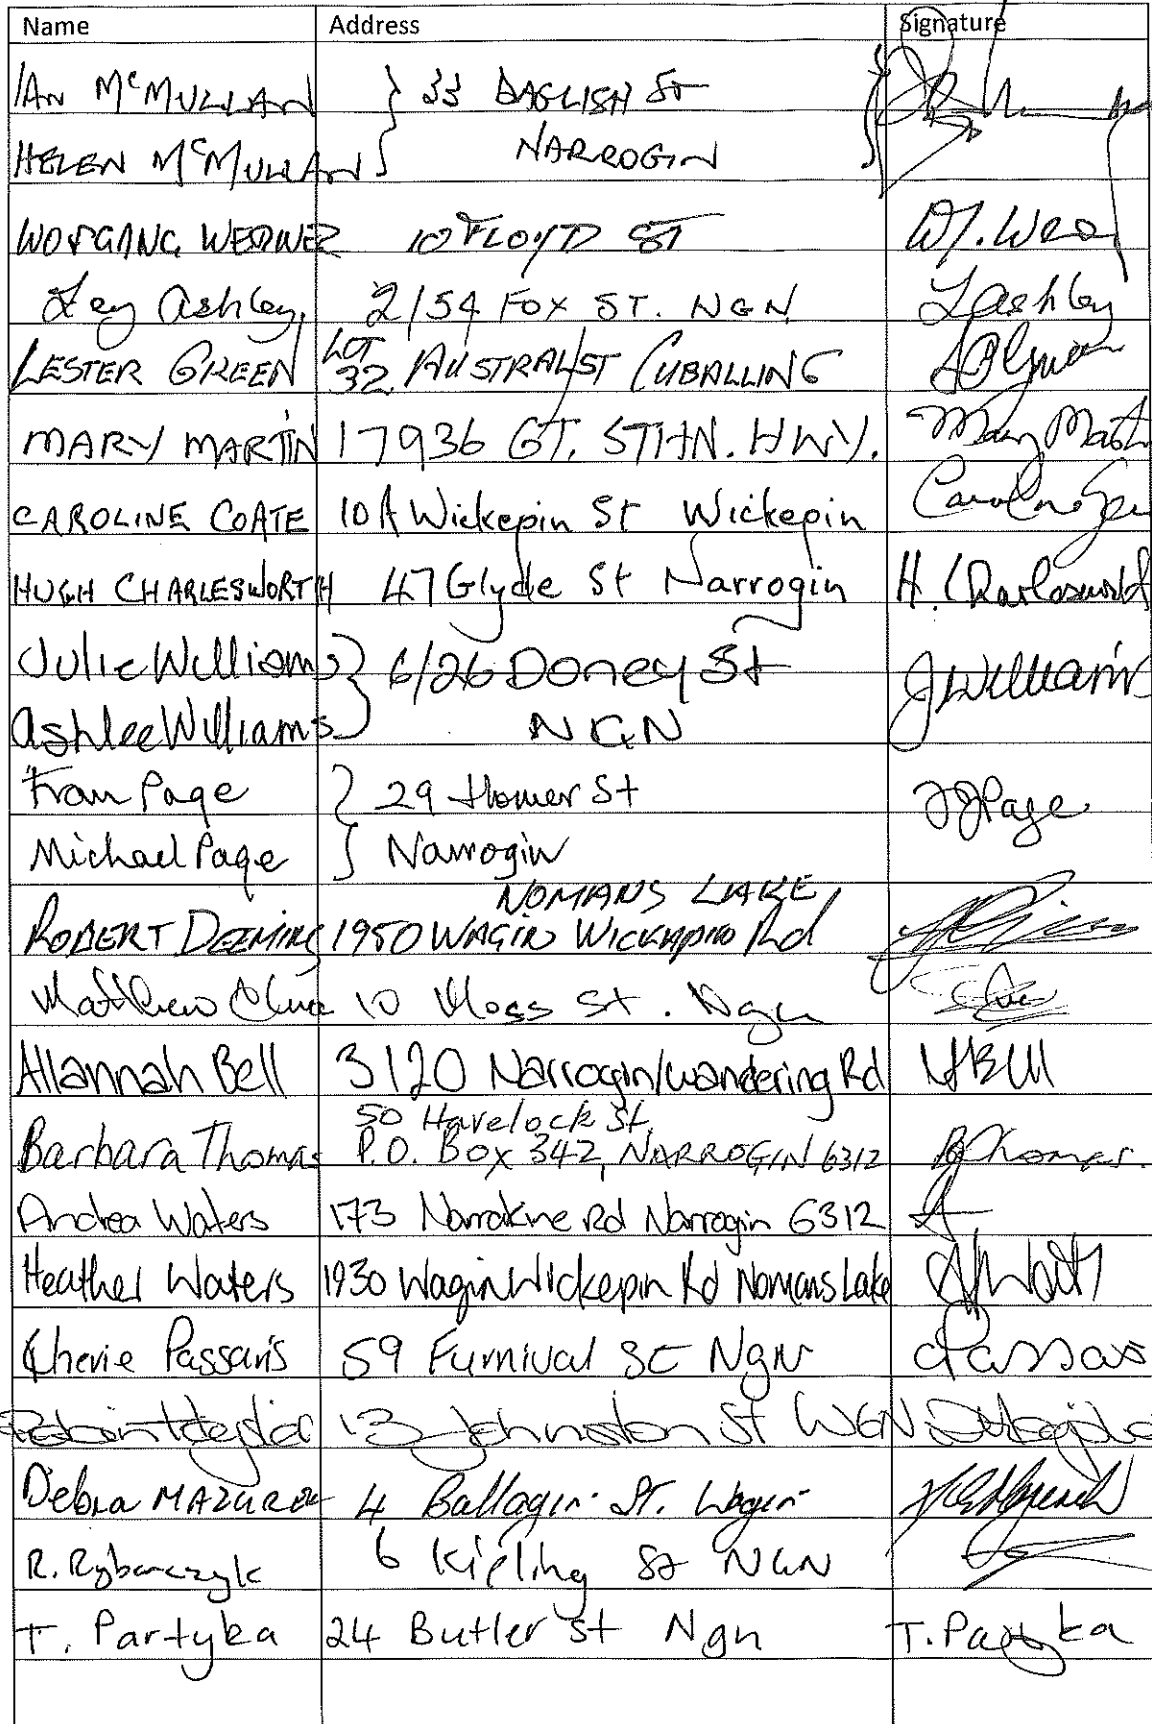 Name Address Signature
IAN McMULLAN } 33 DAGLISH St
HELEN McMULLAN } NARROGIN
WOFGANG WERNER 10 FLOYD ST W.
Ley Ashley, 2/54 FOX ST. NGN LAshley
LESTER GREEN LOT 32 AUSTRAL ST CUBALLING
MARY MARTIN 17936 GT. STHN. HWY. Mary Martin
CAROLINE COATE 10A Wickepin St Wickepin Caroline
HUGH CHARLESWORTH 47 Glyde St Narrogin H. Charlesworth
Julie Williams } 6/26 Doney St JWilliams
Ashlee Williams } NGN
Fran Page } 29 Homer St FJPage.
Michael Page } Narrogin
NOMANS LAKE
ROBERT DEEMING 1950 WAGIN WICKEPIN Rd
Matthew 10 Moss St. Ngn
Allannah Bell 3120 Narrogin/Wandering Rd ABell
50 Havelock St,
Barbara Thomas P.O. Box 342, NARROGIN 6312 BThomas.
Andrea Waters 173 Narrakine Rd Narrogin 6312 A
Heather Waters 1930 Wagin Wickepin Rd Nomans Lake
Cherie Passaris 59 Furnival St Ngn
13 Johnston St WGN
Debra MAZUREK 4 Ballagin St. Wagin
R. Rybarczyk 6 Kipling St NGN
T. Partyka 24 Butler St Ngn T. Partyka